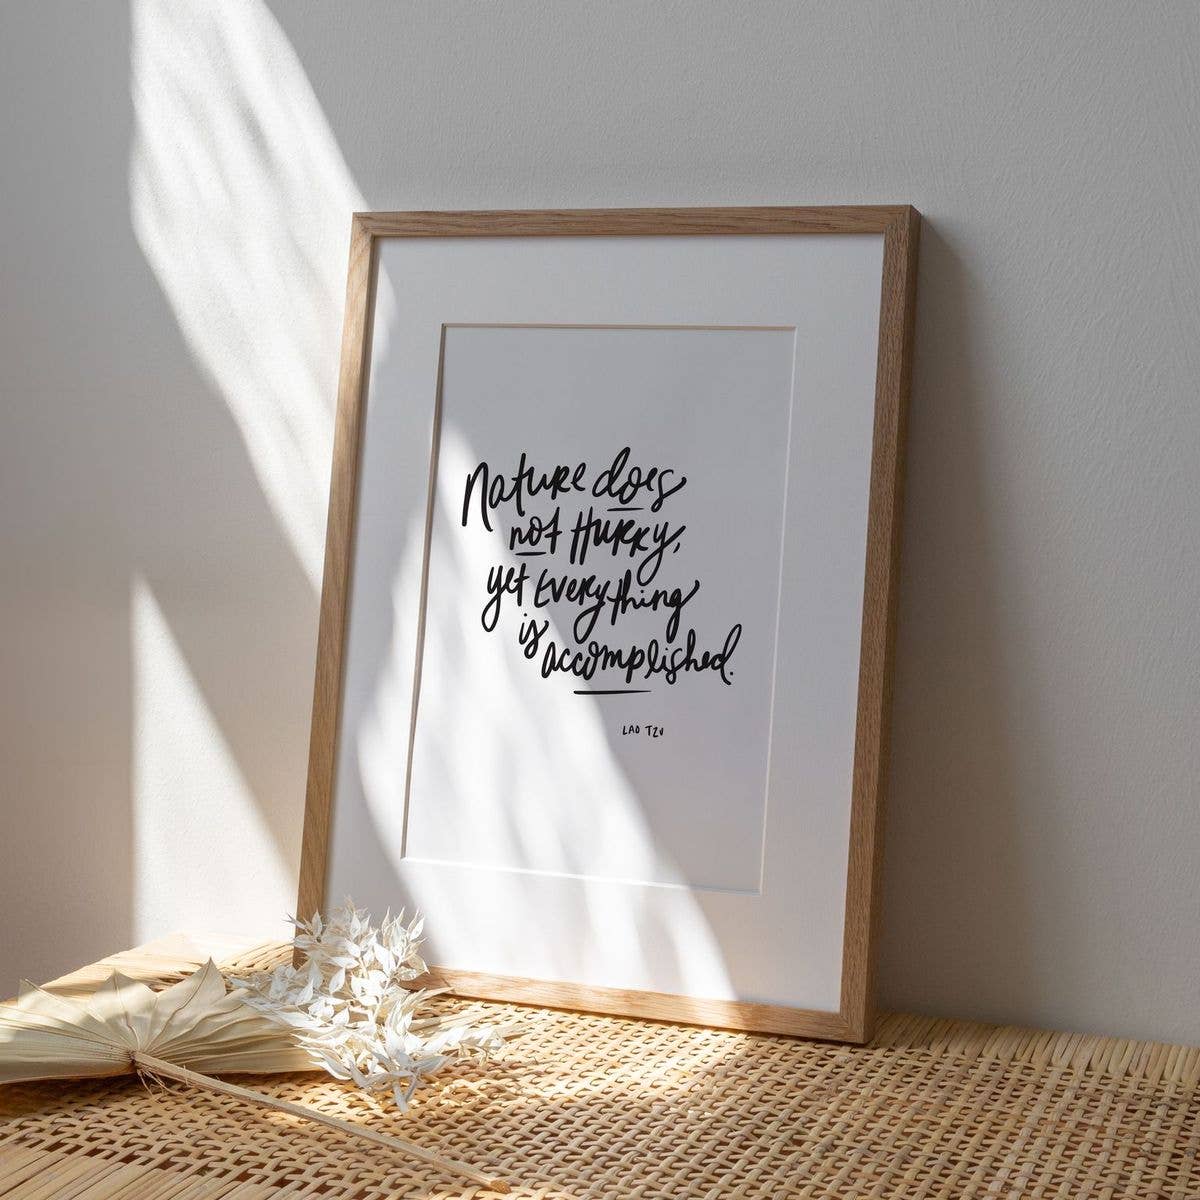 Nature does
not Hurry,
yet Everything
is
accomplished.
LAO TZU